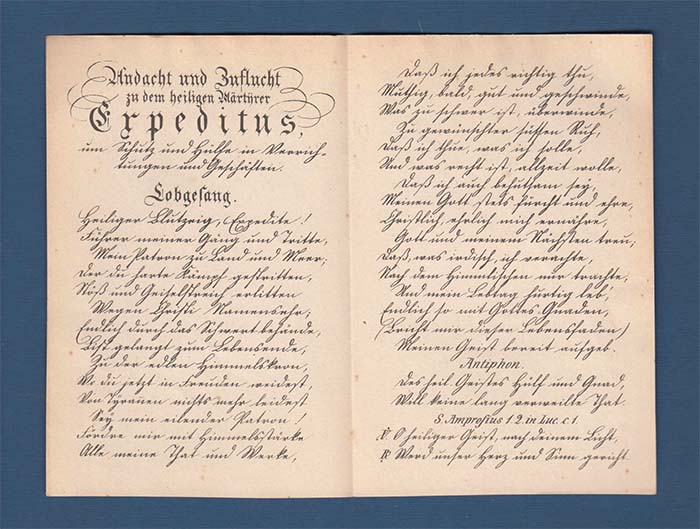 Andacht und Zuflucht
zu dem heiligen Märtürer
Expeditus,
um Schutz und Hülfe in Verrich-
tungen und Geschäften.
Lobgesang.
Heiliger Blutzeig, Expedite!
Führer meiner Gäng und Tritte,
Mein Patron zu Land und Meer;
Der du harte Kämpf gestritten,
Stöß und Geiselstreich erlitten
Wegen Christi Namensehr,
Endlich durch das Schwert behände,
Bist gelangt zum Lebensende,
Zu der edlen Himmelskron,
Wo du jetzt in Freuden weidest,
Von Tyranen nichts mehr leidest
Sey mein eilender Patron!
Fördre mir mit Himmelsstärke
Alle meine That und Werke,
Daß ich jedes richtig thu,
Muthig, bald, gut und geschwinde,
Was zu schwer ist, überwinde,
Zu gewünschter süssen Ruh,
Daß ich thue, was ich solle,
Und was recht ist, allzeit wolle,
Daß ich auch behutsam sey,
Meinen Gott stets fürcht und ehre,
Christlich, ehrlich mich ernähre,
Gott und meinem Nächsten treu;
Daß, was irdisch, ich verachte,
Nach dem Himmlischen nur trachte,
Und mein Lebtag hurtig leb',
Endlich so mit Gottes Gnaden,
(Bricht mir dieser Lebensfaden)
Meinen Geist bereit aufgeb.
Antiphon.
Des heil. Geistes Hülf und Gnad,
Will keine lang verweilte That
S. Amprosius 1 2. in Luc. c 1.
V. O heiliger Geist, nach deinem Licht,
R. Werd unser Herz und Sinn gericht.